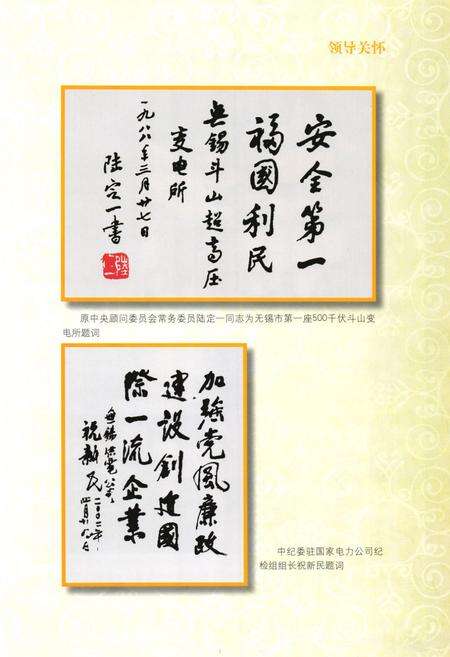 领导关怀
安全第一
福國利民
無锡斗山超高压
变电所
一九八八年三月廿七日
陆定一書
原中央顾问委员会常务委员陆定一同志为无锡市第一座500千伏斗山变
电所题词
加強党風廉政
建设創建國
際一流企業
無锡供電公司
祝新民
中纪委驻国家电力公司纪
检组组长祝新民题词